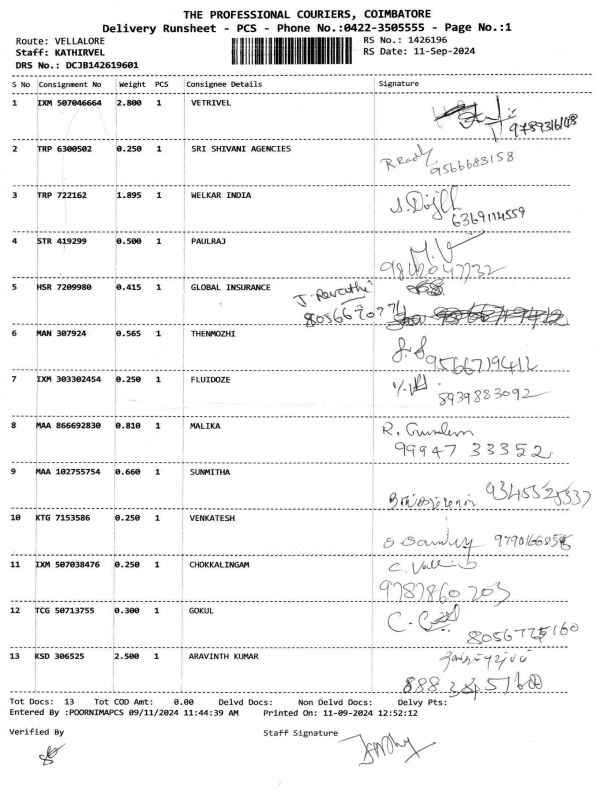 THE PROFESSIONAL COURIERS, COIMBATORE
Delivery Runsheet - PCS - Phone No.:0422-3505555 - Page No.:1
Route: VELLALORE RS No.: 1426196
Staff: KATHIRVEL RS Date: 11-Sep-2024
DRS No.: DCJB142619601
S No Consignment No Weight PCS Consignee Details Signature
1 IXM 507046664 2.800 1 VETRIVEL
9789316148
2 TRP 6300502 0.250 1 SRI SHIVANI AGENCIES
9566683158
3 TRP 722162 1.895 1 WELKAR INDIA
6369114559
4 STR 419299 0.500 1 PAULRAJ
5 HSR 7209980 0.415 1 GLOBAL INSURANCE
J. Revathi
6 MAN 307924 0.565 1 THENMOZHI
9566719412
7 IXM 303302454 0.250 1 FLUIDOZE
8939883092
8 MAA 866692830 0.810 1 MALIKA
99947 33352
9 MAA 102755754 0.660 1 SUNMITHA
10 KTG 7153586 0.250 1 VENKATESH
11 IXM 507038476 0.250 1 CHOKKALINGAM
9787860203
12 TCG 50713755 0.300 1 GOKUL
13 KSD 306525 2.500 1 ARAVINTH KUMAR
Tot Docs: 13 Tot COD Amt: 0.00 Delvd Docs: Non Delvd Docs: Delvy Pts:
Entered By :POORNIMAPCS 09/11/2024 11:44:39 AM Printed On: 11-09-2024 12:52:12
Verified By Staff Signature